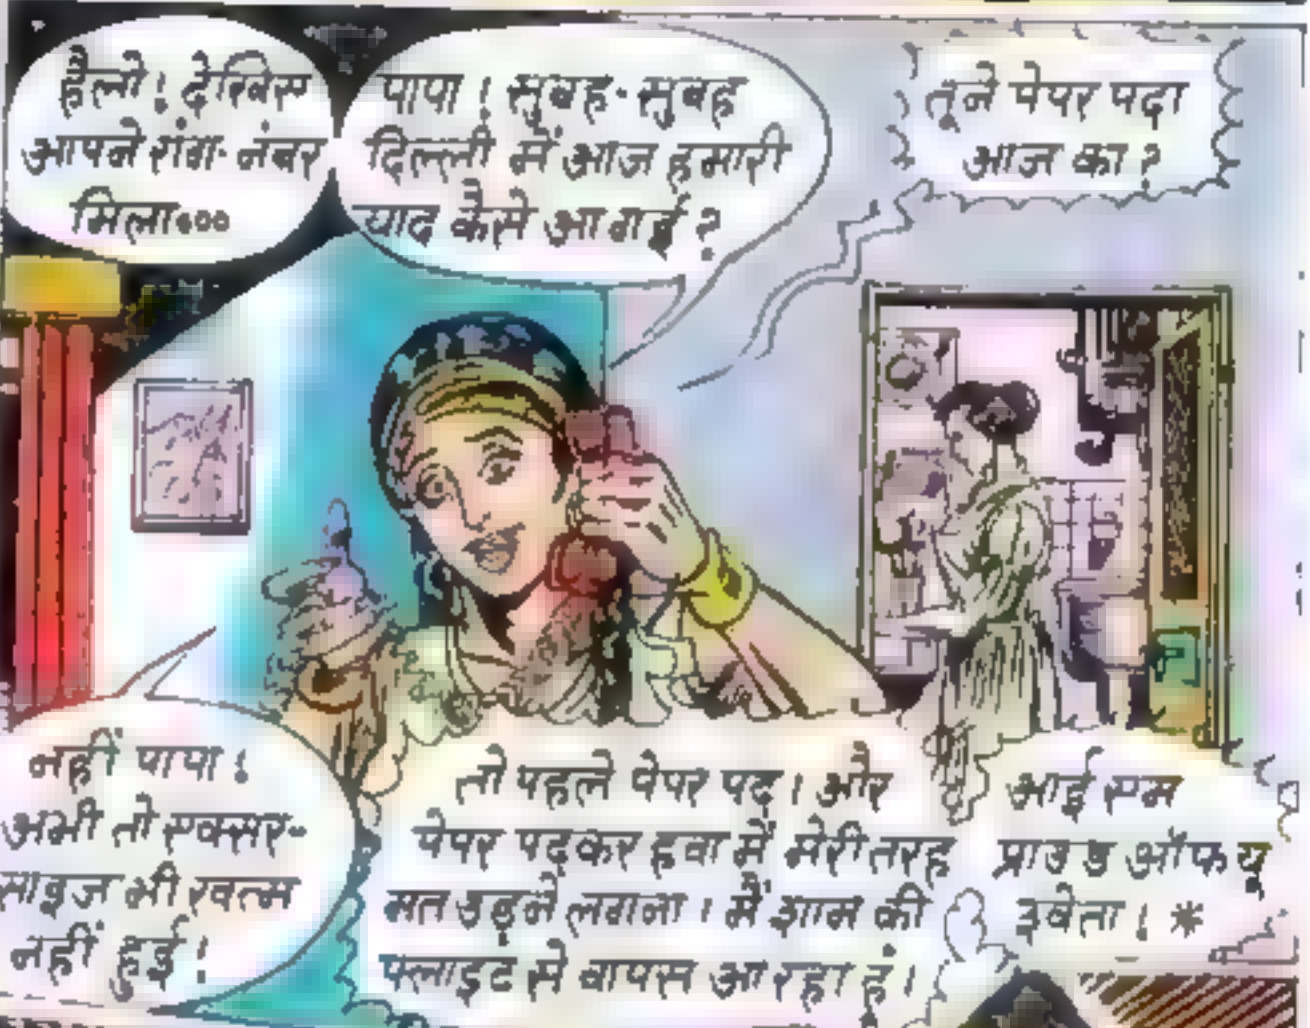 हैलो! देखिए
आपने रांग-नंबर
मिला०००
पापा! सुबह-सुबह
दिल्ली में आज हमारी
याद कैसे आ गई?
तूने पेपर पढ़ा
आज का?
नहीं पापा!
अभी तो एक्सर-
साइज भी खत्म
नहीं हुई!
तो पहले पेपर पढ़। और
पेपर पढ़कर हवा में मेरी तरह
मत उड़ने लगना। मैं शाम की
फ्लाइट से वापस आ रहा हूं।
आई एम
प्राउड ऑफ यू
श्वेता! *